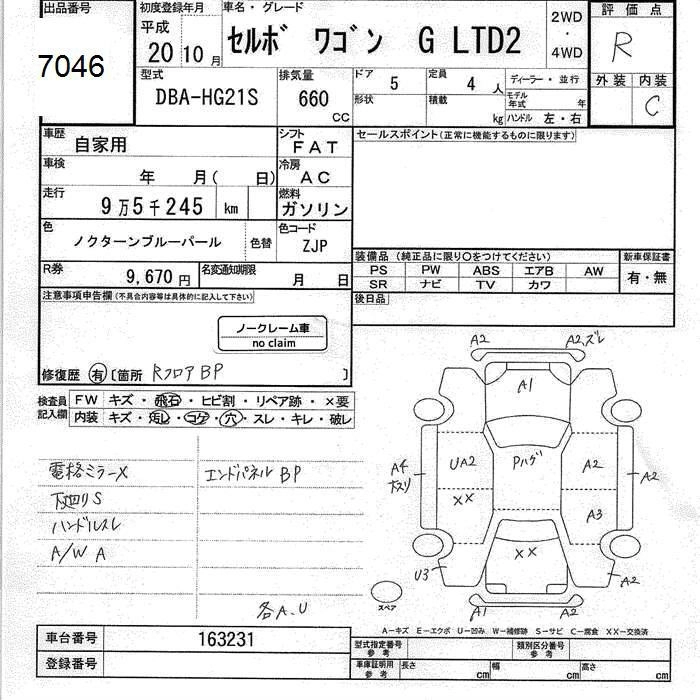 出品番号 初度登録年月 車名・グレード 評価点
7046 平成 20 10月 セルボ ワゴン G LTD2 2WD ・ 4WD R
型式 排気量 ドア 定員 ディーラー・並行 外装 内装
DBA-HG21S 660 CC 5 4 人 モデル年式 年 C
形状 積載 kg ハンドル 左・右
車歴 自家用 シフト FAT セールスポイント(正常に機能するものに限ります)
車検 年 月( 日) 冷房 AC
走行 9万5千245 km 燃料 ガソリン
色 ノクターンブルーパール 色替 色コード ZJP
装備品(純正品に限り○をつけてください) 新車保証書
PS PW ABS エアB AW 有・無
SR ナビ TV カワ
R券 9,670円 名変通知期限 月 日
後日品
注意事項申告欄(不具合内容等は具体的に記入して下さい)
ノークレーム車
no claim
修復歴 有 〔箇所 Rフロア BP 〕
検査員記入欄 FW キズ・飛石・ヒビ割・リペア跡・×要
内装 キズ・汚レ・コゲ・穴・スレ・キレ・破レ
電格ミラーX エンドパネル BP
下廻り S
ハンドルスレ
A/W A
各A、U
A2 A2、ズレ
A1
UA2 Pハゲ A2
A4 A2
XX A3
XX
U3 A2
A1 A2
スペア
A-キズ E-エクボ U-凹み W-補修跡 S-サビ C-腐食 XX-交換済
車台番号 163231
型式指定番号 参考 類別区分番号 参考
登録番号
車庫証明用 参考 長さ cm 幅 cm 高さ cm